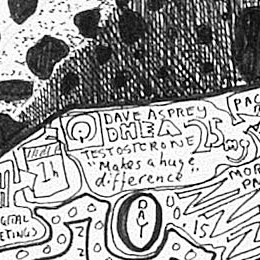 DAVE ASPREY
DHEA 25 mg
TESTOSTERONE
Makes a huge
difference
1h
MOR
PA
DAY
15